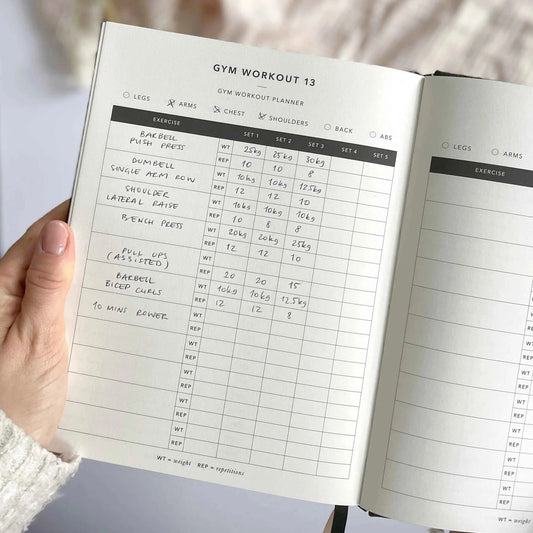 GYM WORKOUT 13
GYM WORKOUT PLANNER
LEGS ARMS CHEST SHOULDERS BACK ABS
EXERCISE SET 1 SET 2 SET 3 SET 4 SET 5
BARBELL WT 25kg 25kg 30kg
PUSH PRESS REP 10 10 8
DUMBELL WT 10kg 10kg 12.5kg
SINGLE ARM ROW REP 12 12 10
SHOULDER WT 10kg 10kg 10kg
LATERAL RAISE REP 10 8 8
BENCH PRESS WT 20kg 20kg 25kg
REP 12 12 10
PULL UPS WT
(ASSISTED) REP 20 20 15
BARBELL WT 10kg 10kg 12.5kg
BICEP CURLS REP 12 12 8
10 MINS ROWER WT
REP
WT
REP
WT
REP
WT
REP
WT
REP
WT = weight REP = repetitions
LEGS ARMS
EXERCISE
WT
REP
WT
REP
WT
REP
WT
REP
WT
REP
WT = weight